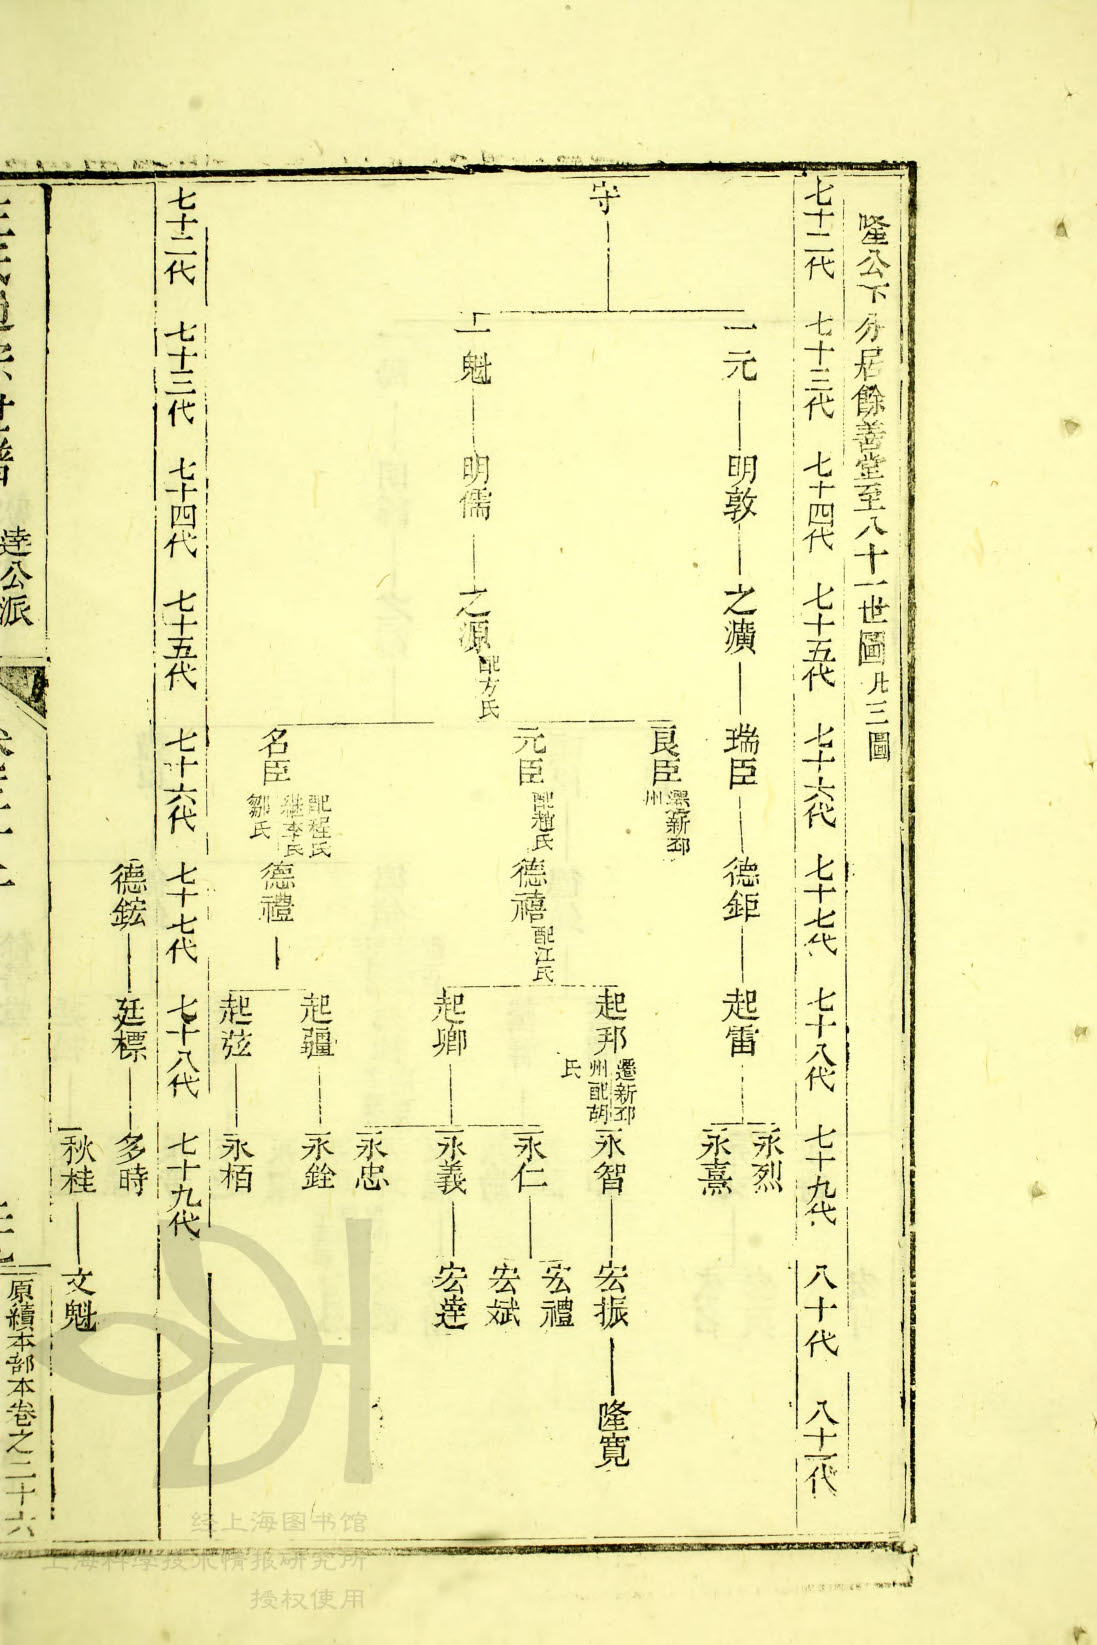 隆公下分居餘善堂至八十一世圖凡三圖
七十二代 七十三代 七十四代 七十五代 七十六代 七十七代 七十八代 七十九代 八十代 八十一代
守
一元 明敦 之潢 瑞臣 德鉅 起雷 永烈
永熹
良臣 遷新邳州
元臣 配趙氏 德禧 配江氏 起邦 遷新邳州配胡氏 永智 宏振 隆寬
起卿 永仁 宏禮
宏斌
永義 宏達
永忠
魁 明儒 之源 配方氏
名臣 配程氏繼李氏鄒氏 德禮 起疆 永銓
起弦 永栢
七十二代 七十三代 七十四代 七十五代 七十六代 七十七代 七十八代 七十九代
德鋐 廷標 多時
秋桂 文魁
達公派
原續本部本卷之二十六
经上海图书馆
上海科学技术情报研究所
授权使用